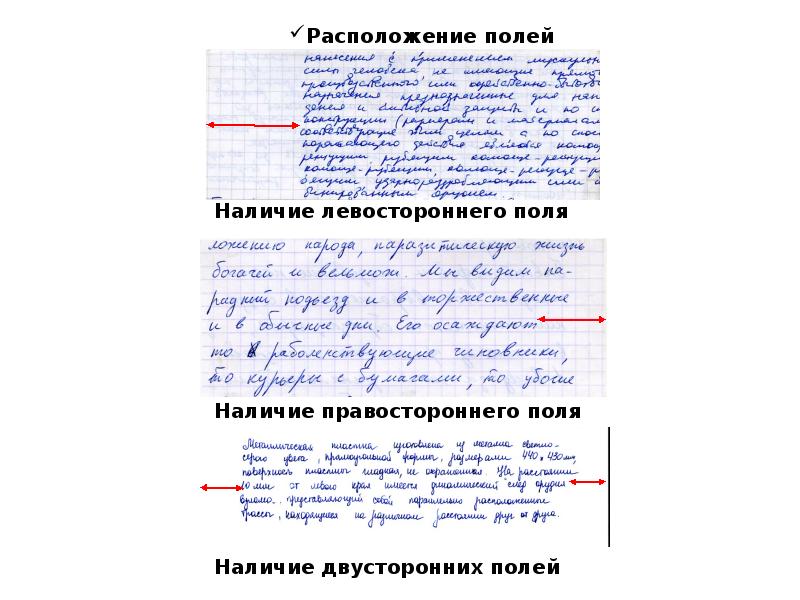 ✓Расположение полей
нанесения с применением мускульн
силы человека, не имеющие прямо
производственного или хозяйственно-бытово
назначения предназначенные для нап
дения и активной защиты и по с
конструкции (размерам и материалам
соответствующие этим целям а по спос
поражающего действия является колющ
режущим, рубящим колюще-режущи
колюще-рубящим, колюще-режуще-р
бящим ударнораздробляющим или
бинированным оружием.
Наличие левостороннего поля
ложению народа, паразитическую жизнь
богачей и вельмож. Мы видим па-
радный подъезд и в торжественные
и в обычные дни. Его осаждают
то раболепствующие чиновники,
то курьеры с бумагами, то убогие
Наличие правостороннего поля
Металлическая пластина изготовлена из металла светло-
серого цвета, прямоугольной формы, размерами 440 х 430 мм,
поверхность пластины гладкая, не окрашенная. На расстоянии
10 мм от левого края имеется динамический след орудия
взлома, представляющий собой параллельно расположенные
трассы, находящиеся на различном расстоянии друг от друга.
Наличие двусторонних полей